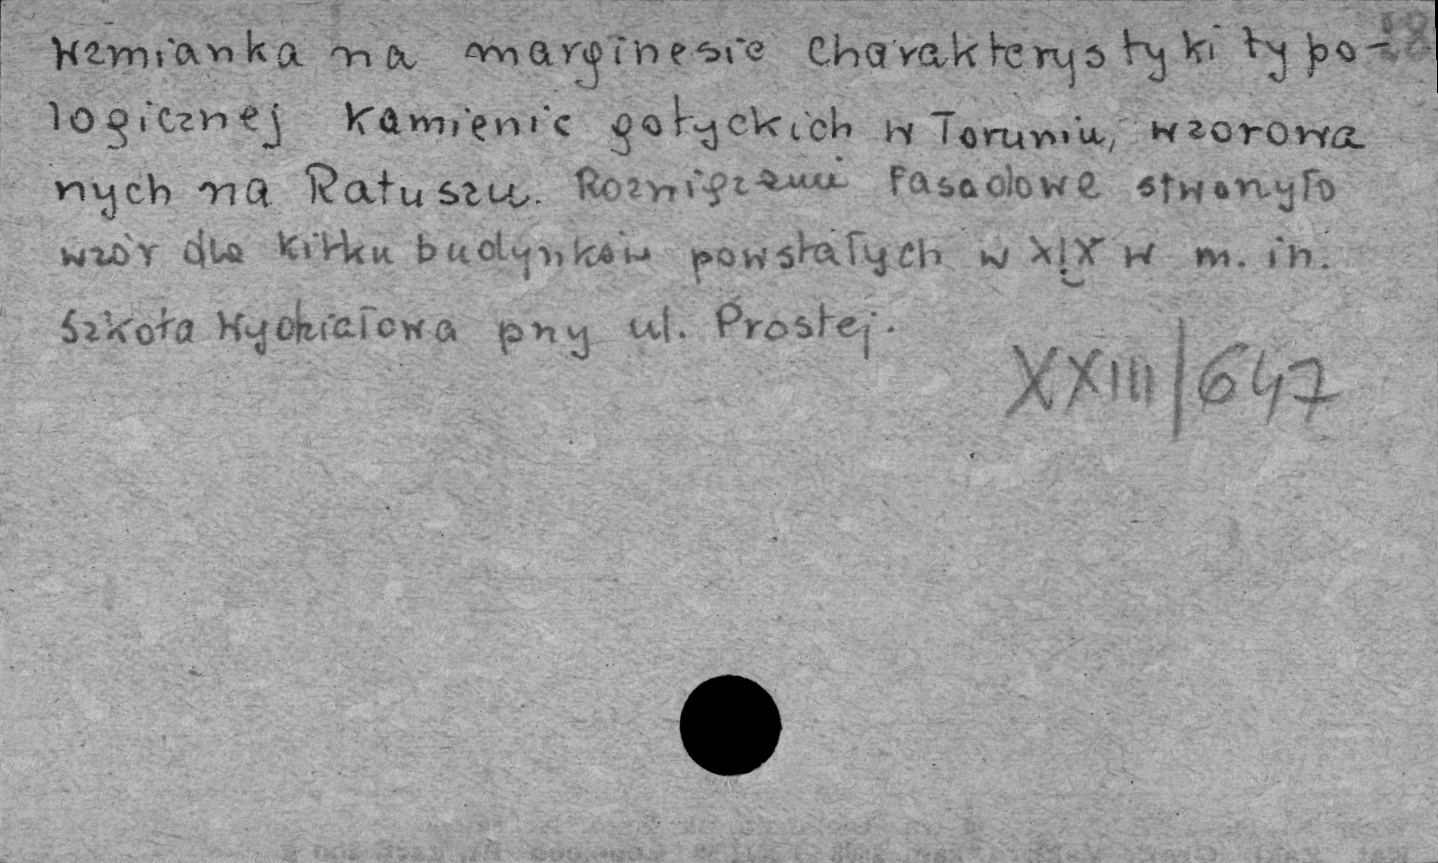 Wzmianka na marginesie charakterystyki typo-
logicznej kamienic gotyckich w Toruniu, wzorowa
nych na Ratuszu. Rozwiązanie fasadowe stworzyło
wzór dla kilku budynków powstałych w XIX w m. in.
Szkoła Wydziałowa przy ul. Prostej.
XXIII/647